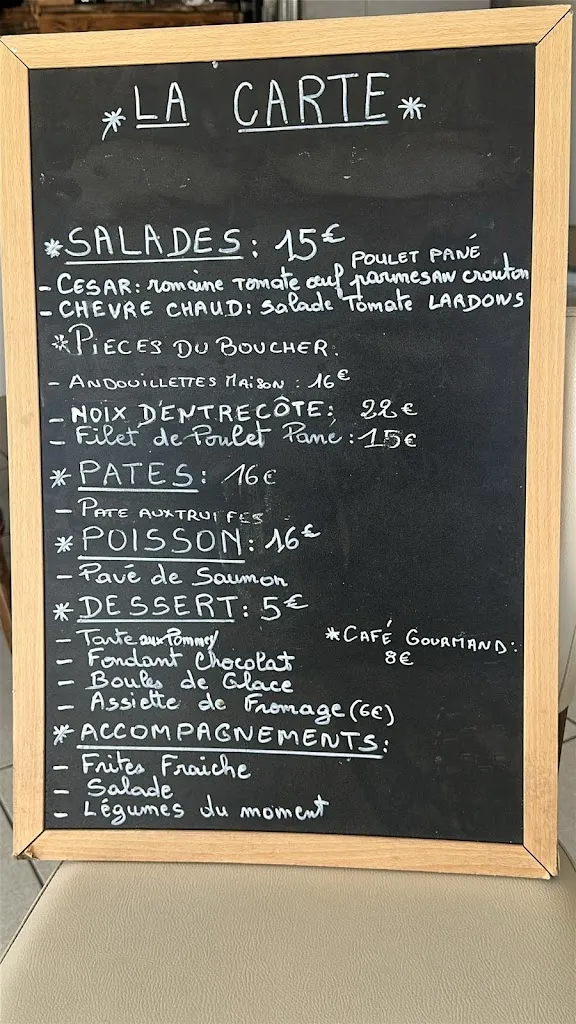 * LA CARTE *
* SALADES: 15€
POULET PANÉ
- CESAR: romaine Tomate œuf parmesan crouton
- CHEVRE CHAUD: Salade Tomate LARDONS
* PIECES DU BOUCHER:
- ANDOUILLETTES MAISON: 16€
- NOIX D'ENTRECÔTE: 22€
- Filet de Poulet Pané: 15€
* PATES: 16€
- PATE AUX TRUFFES
* POISSON: 16€
- Pavé de Saumon
* DESSERT: 5€
- Tarte aux Pommes
* CAFÉ GOURMAND:
8€
- Fondant Chocolat
- Boules de Glace
- Assiette de Fromage (6€)
* ACCOMPAGNEMENTS:
- Frites Fraiche
- Salade
- Légumes du moment